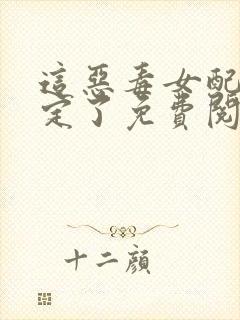 這惡毒女配
定了免費閱
十二顏